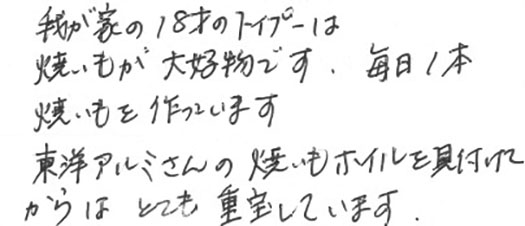 我が家の18才のトイプーは
焼いもが大好物です。毎日1本
焼いもを作っています
東洋アルミさんの焼いもホイルを見付けて
からはとても重宝しています。